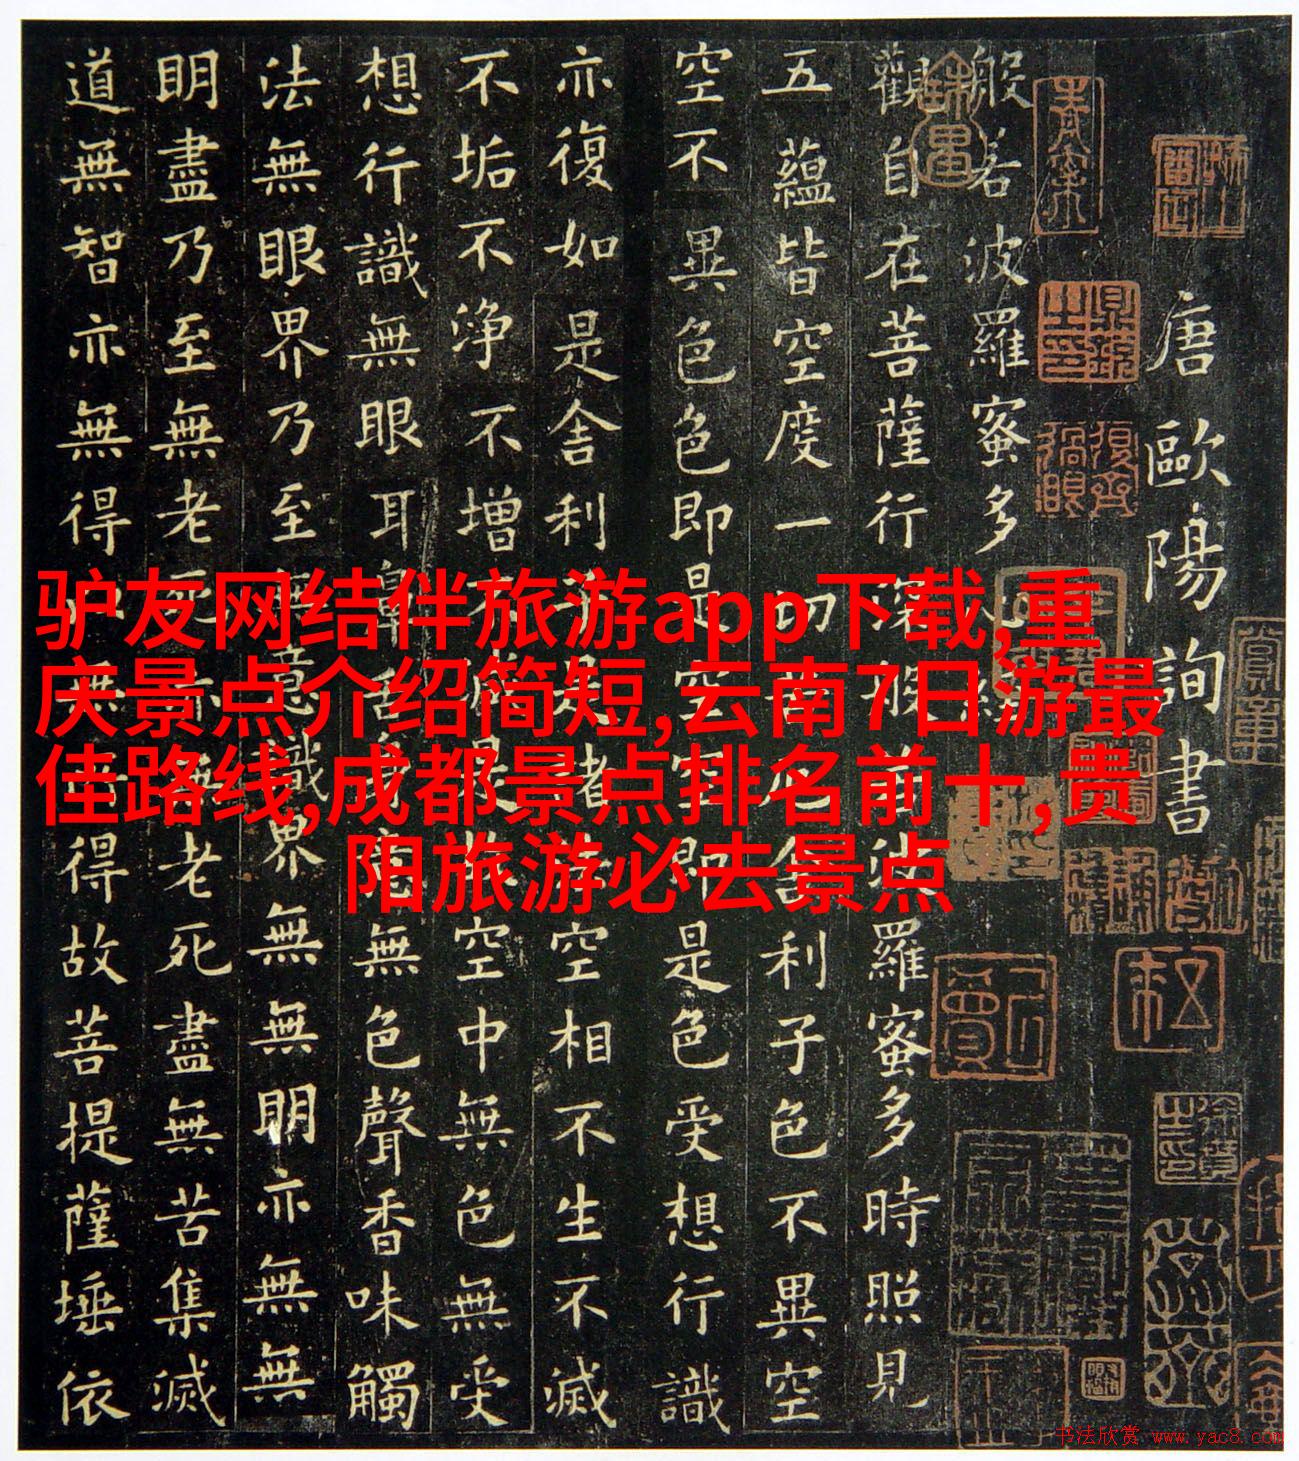 驴友网结伴旅游app下载,重
庆景点介绍简短,云南7日游最
佳路线,成都景点排名前十,贵
阳旅游必去景点
唐歐陽詢書
般若波羅蜜多心經
觀自在菩薩行深般若波羅蜜多時照見
五蘊皆空度一切苦厄舍利子色不異空
空不異色色即是空空即是色受想行識
亦復如是舍利子是諸法空相不生不滅
不垢不淨不增不減是故空中無色無受
想行識無眼耳鼻舌身意無色聲香味觸
法無眼界乃至無意識界無無明亦無無
明盡乃至無老死亦無老死盡無苦集滅
道無智亦無得以無所得故菩提薩埵依
书法欣赏 www.yac8.com